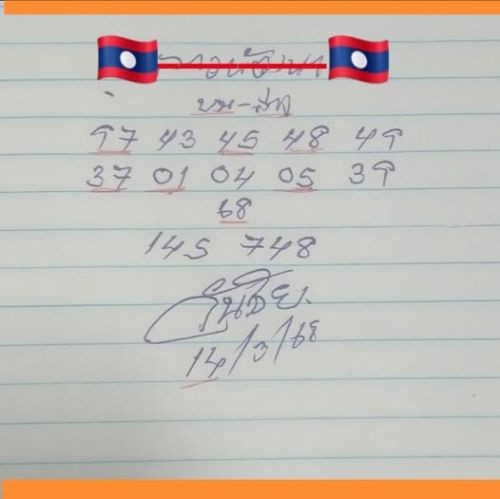 ลาวพัฒนา
บน-ล่าง
97 43 45 48 49
37 01 04 05 39
68
145 748
14/3/68